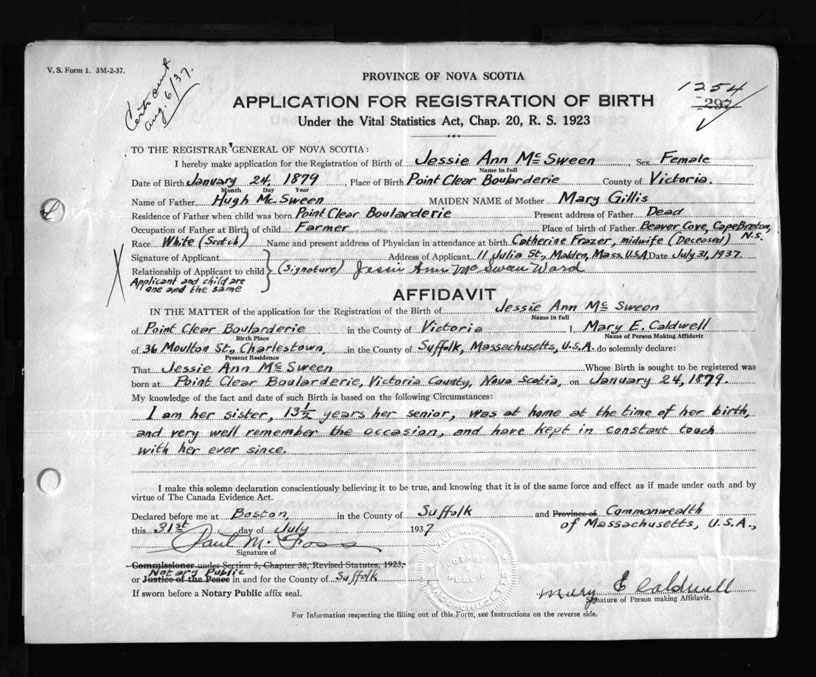 V. S. Form 1. 3M-2-37.
Certs out
Aug. 6/37.
PROVINCE OF NOVA SCOTIA
1254
292
APPLICATION FOR REGISTRATION OF BIRTH
Under the Vital Statistics Act, Chap. 20, R. S. 1923
TO THE REGISTRAR GENERAL OF NOVA SCOTIA:
I hereby make application for the Registration of Birth of Jessie Ann McSween, Sex Female
Name in full
Date of Birth January 24, 1879, Place of Birth Point Clear Boularderie County of Victoria.
Month Day Year
Name of Father Hugh McSween MAIDEN NAME of Mother Mary Gillis
Residence of Father when child was born Point Clear Boularderie Present address of Father Dead
Occupation of Father at Birth of child Farmer Place of birth of Father Beaver Cove, Cape Breton, N.S.
Race White (Scotch) Name and present address of Physician in attendance at birth Catherine Frazer, midwife (Deceased)
Signature of Applicant Address of Applicant 11 Julia St., Malden, Mass. U.S.A. Date July 31, 1937.
Relationship of Applicant to child (Signature) Jessie Ann McSwean Ward
Applicant and child are
one and the same
AFFIDAVIT
IN THE MATTER of the application for the Registration of the Birth of Jessie Ann McSween
Name in full
of Point Clear Boularderie in the County of Victoria I, Mary E. Caldwell
Birth Place Name of Person Making Affidavit
of 36 Moulton St., Charlestown, in the County of Suffolk, Massachusetts, U.S.A. do solemnly declare:
Present Residence
That Jessie Ann McSween Whose Birth is sought to be registered was
born at Point Clear Boularderie, Victoria County, Nova Scotia, on January 24, 1879.
My knowledge of the fact and date of such Birth is based on the following Circumstances:
I am her sister, 13½ years her senior, was at home at the time of her birth,
and very well remember the occasion, and have kept in constant touch
with her ever since.
I make this solemn declaration conscientiously believing it to be true, and knowing that it is of the same force and effect as if made under oath and by
virtue of The Canada Evidence Act.
Declared before me at Boston, in the County of Suffolk and Province of Commonwealth
this 31st day of July 1937 of Massachusetts, U.S.A.,
Paul M. Foss
Signature of
Commissioner under Section 5, Chapter 38, Revised Statutes, 1923,
Notary Public
or Justice of the Peace in and for the County of Suffolk
If sworn before a Notary Public affix seal.
Mary E Caldwell
Signature of Person making Affidavit.
For Information respecting the filling out of this Form, see Instructions on the reverse side.